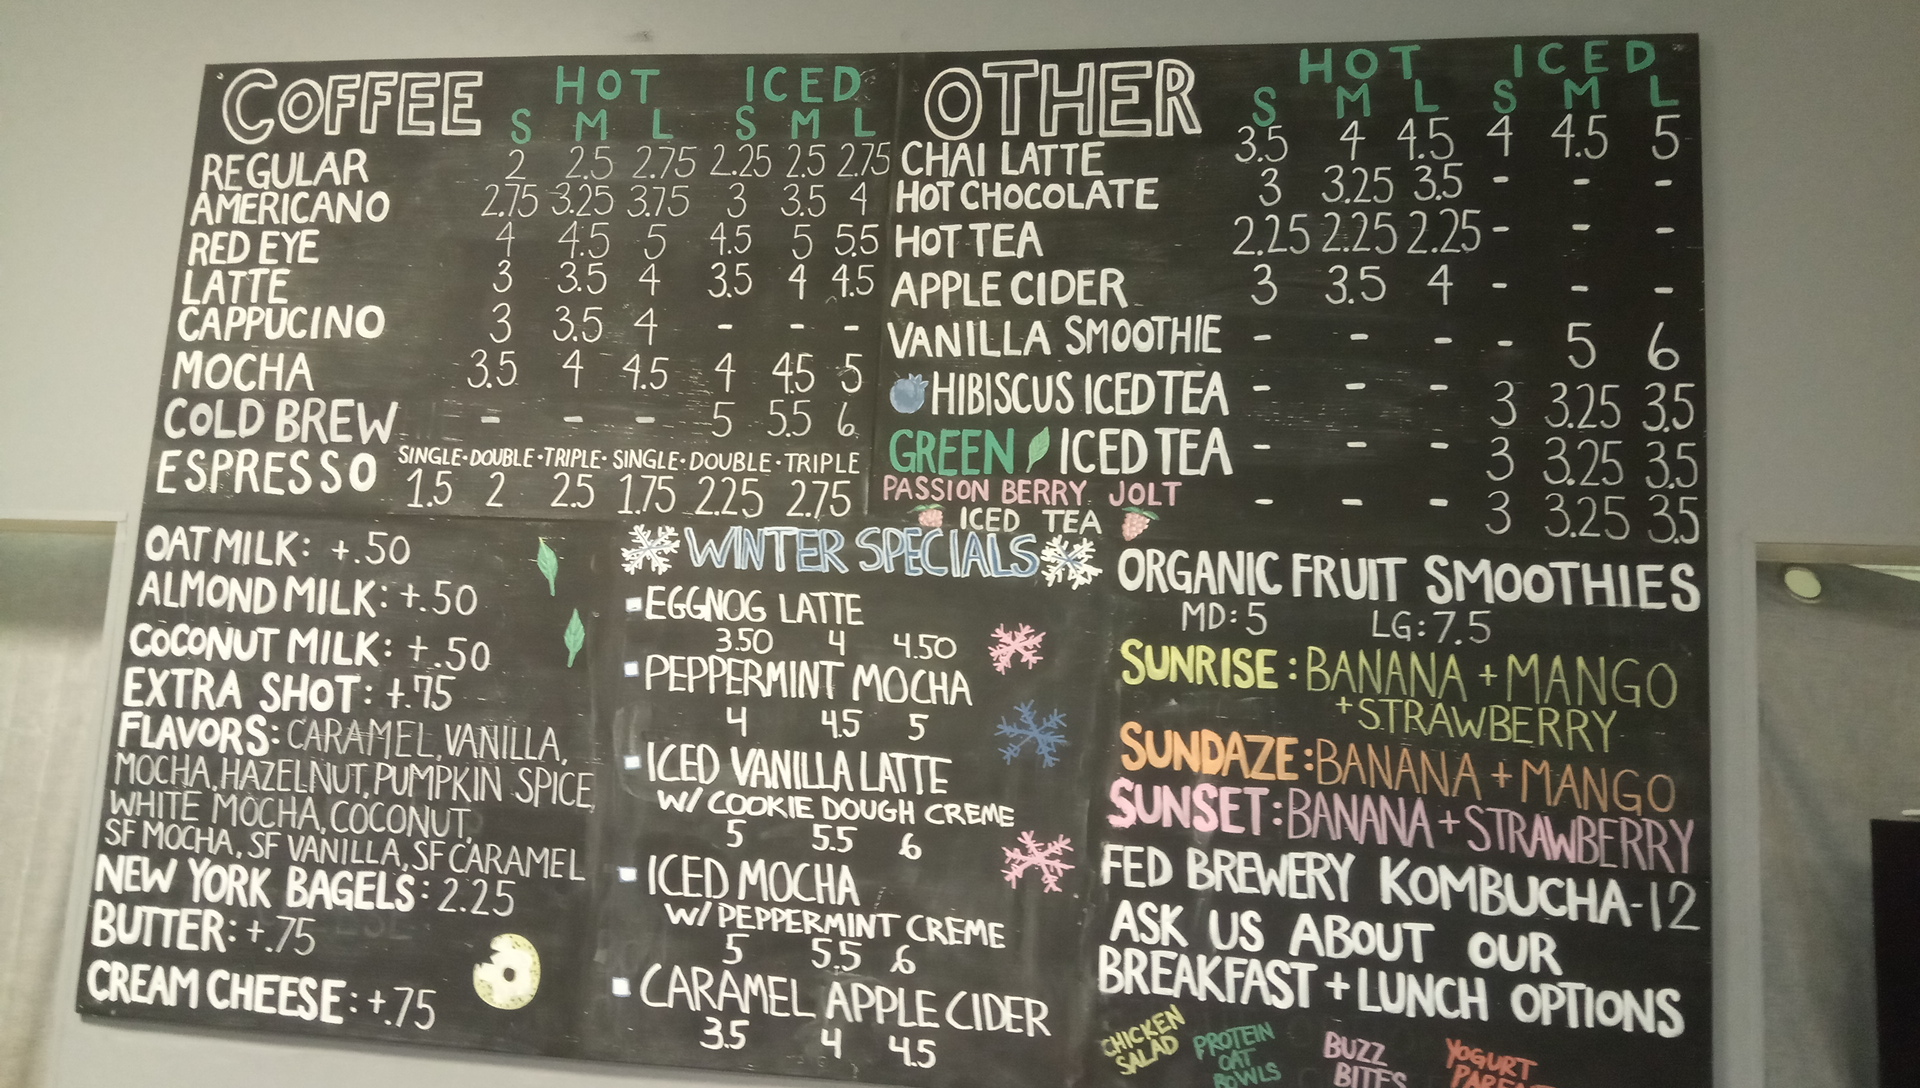 COFFEE HOT ICED
S M L S M L
REGULAR 2 2.5 2.75 2.25 2.5 2.75
AMERICANO 2.75 3.25 3.75 3 3.5 4
RED EYE 4 4.5 5 4.5 5 5.5
LATTE 3 3.5 4 3.5 4 4.5
CAPPUCINO 3 3.5 4 - - -
MOCHA 3.5 4 4.5 4 4.5 5
COLD BREW - - - 5 5.5 6
SINGLE·DOUBLE·TRIPLE· SINGLE·DOUBLE·TRIPLE
ESPRESSO 1.5 2 2.5 1.75 2.25 2.75
OTHER HOT ICED
S M L S M L
CHAI LATTE 3.5 4 4.5 4 4.5 5
HOT CHOCOLATE 3 3.25 3.5 - - -
HOT TEA 2.25 2.25 2.25 - - -
APPLE CIDER 3 3.5 4 - - -
VANILLA SMOOTHIE - - - - 5 6
HIBISCUS ICED TEA - - - 3 3.25 3.5
GREEN ICED TEA - - - 3 3.25 3.5
PASSION BERRY JOLT
ICED TEA - - - 3 3.25 3.5
OAT MILK: +.50
ALMOND MILK: +.50
COCONUT MILK: +.50
EXTRA SHOT: +.75
FLAVORS: CARAMEL, VANILLA,
MOCHA, HAZELNUT, PUMPKIN SPICE,
WHITE MOCHA, COCONUT,
SF MOCHA, SF VANILLA, SF CARAMEL
NEW YORK BAGELS: 2.25
BUTTER: +.75
CREAM CHEESE: +.75
WINTER SPECIALS
EGGNOG LATTE
3.50 4 4.50
PEPPERMINT MOCHA
4 4.5 5
ICED VANILLA LATTE
W/ COOKIE DOUGH CREME
5 5.5 6
ICED MOCHA
W/ PEPPERMINT CREME
5 5.5 6
CARAMEL APPLE CIDER
3.5 4 4.5
ORGANIC FRUIT SMOOTHIES
MD: 5 LG: 7.5
SUNRISE: BANANA + MANGO
+ STRAWBERRY
SUNDAZE: BANANA + MANGO
SUNSET: BANANA + STRAWBERRY
FED BREWERY KOMBUCHA-12
ASK US ABOUT OUR
BREAKFAST + LUNCH OPTIONS
CHICKEN
SALAD
PROTEIN
OAT
BOWLS
BUZZ
BITES
YOGURT
PARFAIT